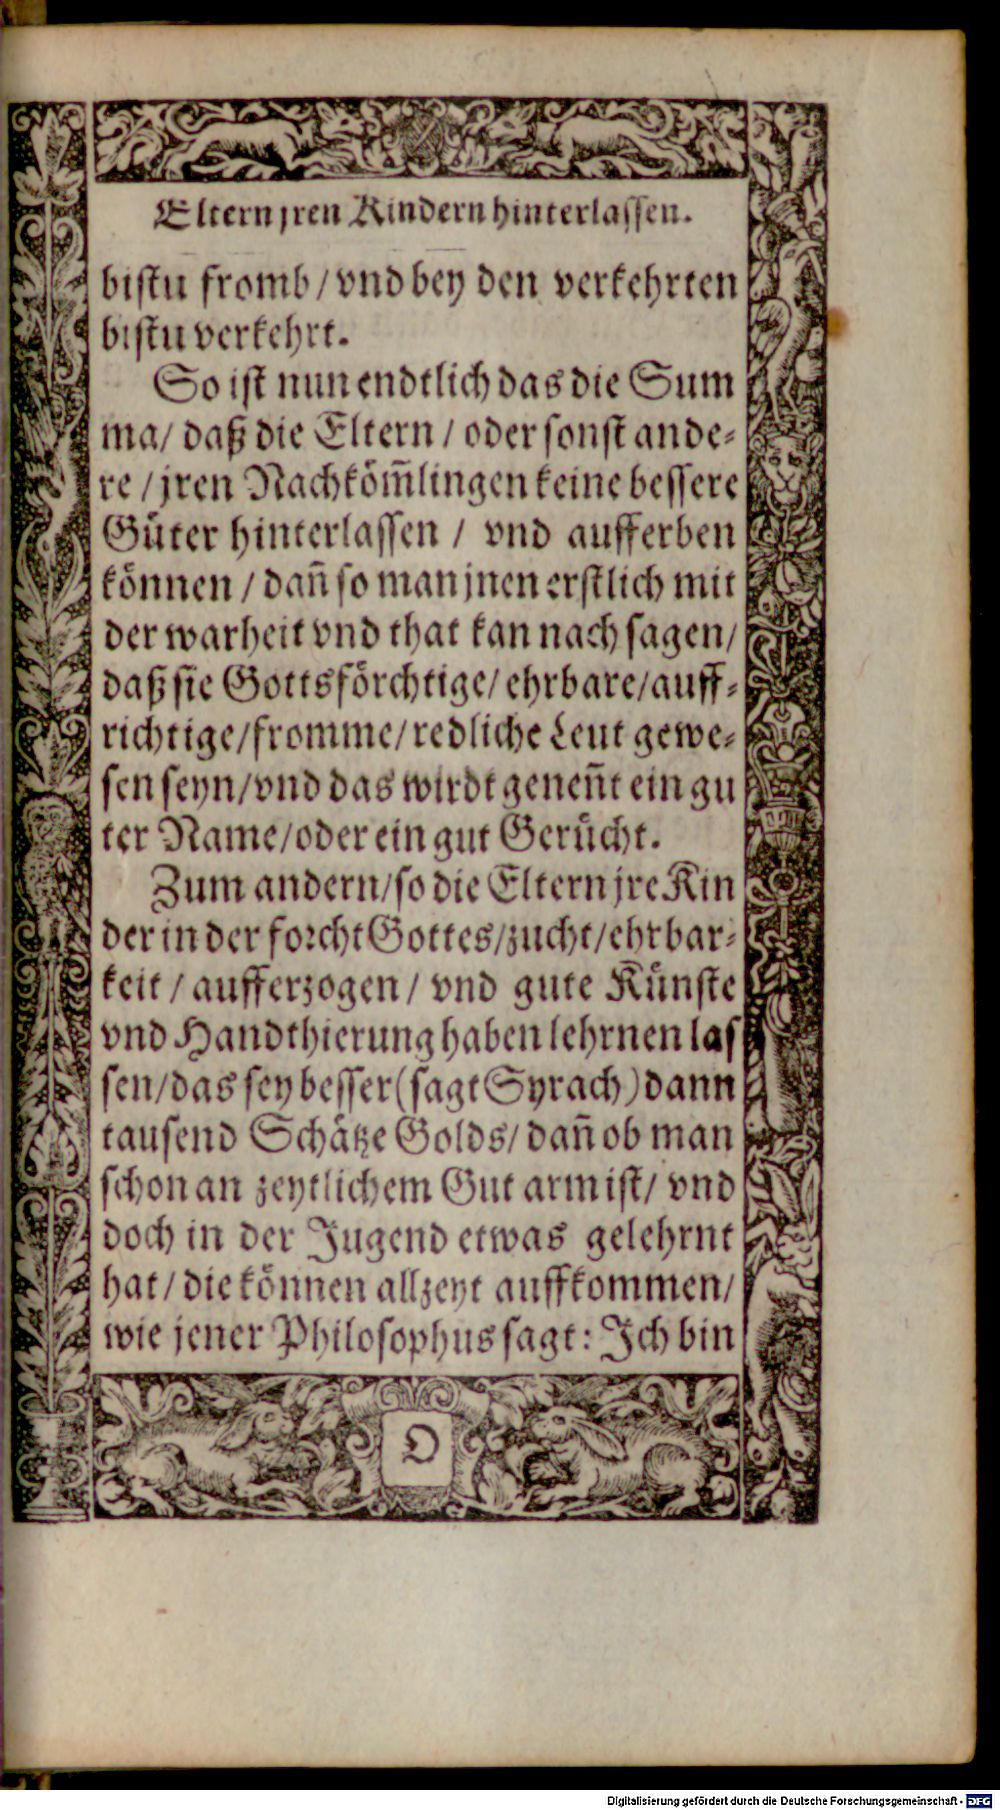 Eltern jren Kindern hinterlassen.
bistu fromb / vnd bey den verkehrten
bistu verkehrt.
So ist nun endtlich das die Sum
ma / daß die Eltern / oder sonst ande-
re / jren Nachköm̃lingen keine bessere
Güter hinterlassen / vnd aufferben
können / dañ so man jnen erstlich mit
der warheit vnd that kan nach sagen /
daß sie Gottsförchtige / ehrbare / auff-
richtige / fromme / redliche Leut gewe-
sen seyn / vnd das wirdt geneñt ein gu
ter Name / oder ein gut Gerücht.
Zum andern / so die Eltern jre Kin
der in der forcht Gottes / zucht / ehrbar-
keit / aufferzogen / vnd gute Künste
vnd Handthierung haben lehrnen las
sen / das sey besser (sagt Syrach) dann
tausend Schätze Golds / dañ ob man
schon an zeytlichem Gut arm ist / vnd
doch in der Jugend etwas gelehrnt
hat / die können allzeyt auffkommen /
wie jener Philosophus sagt: Ich bin
O
Digitalisierung gefördert durch die Deutsche Forschungsgemeinschaft - DFG